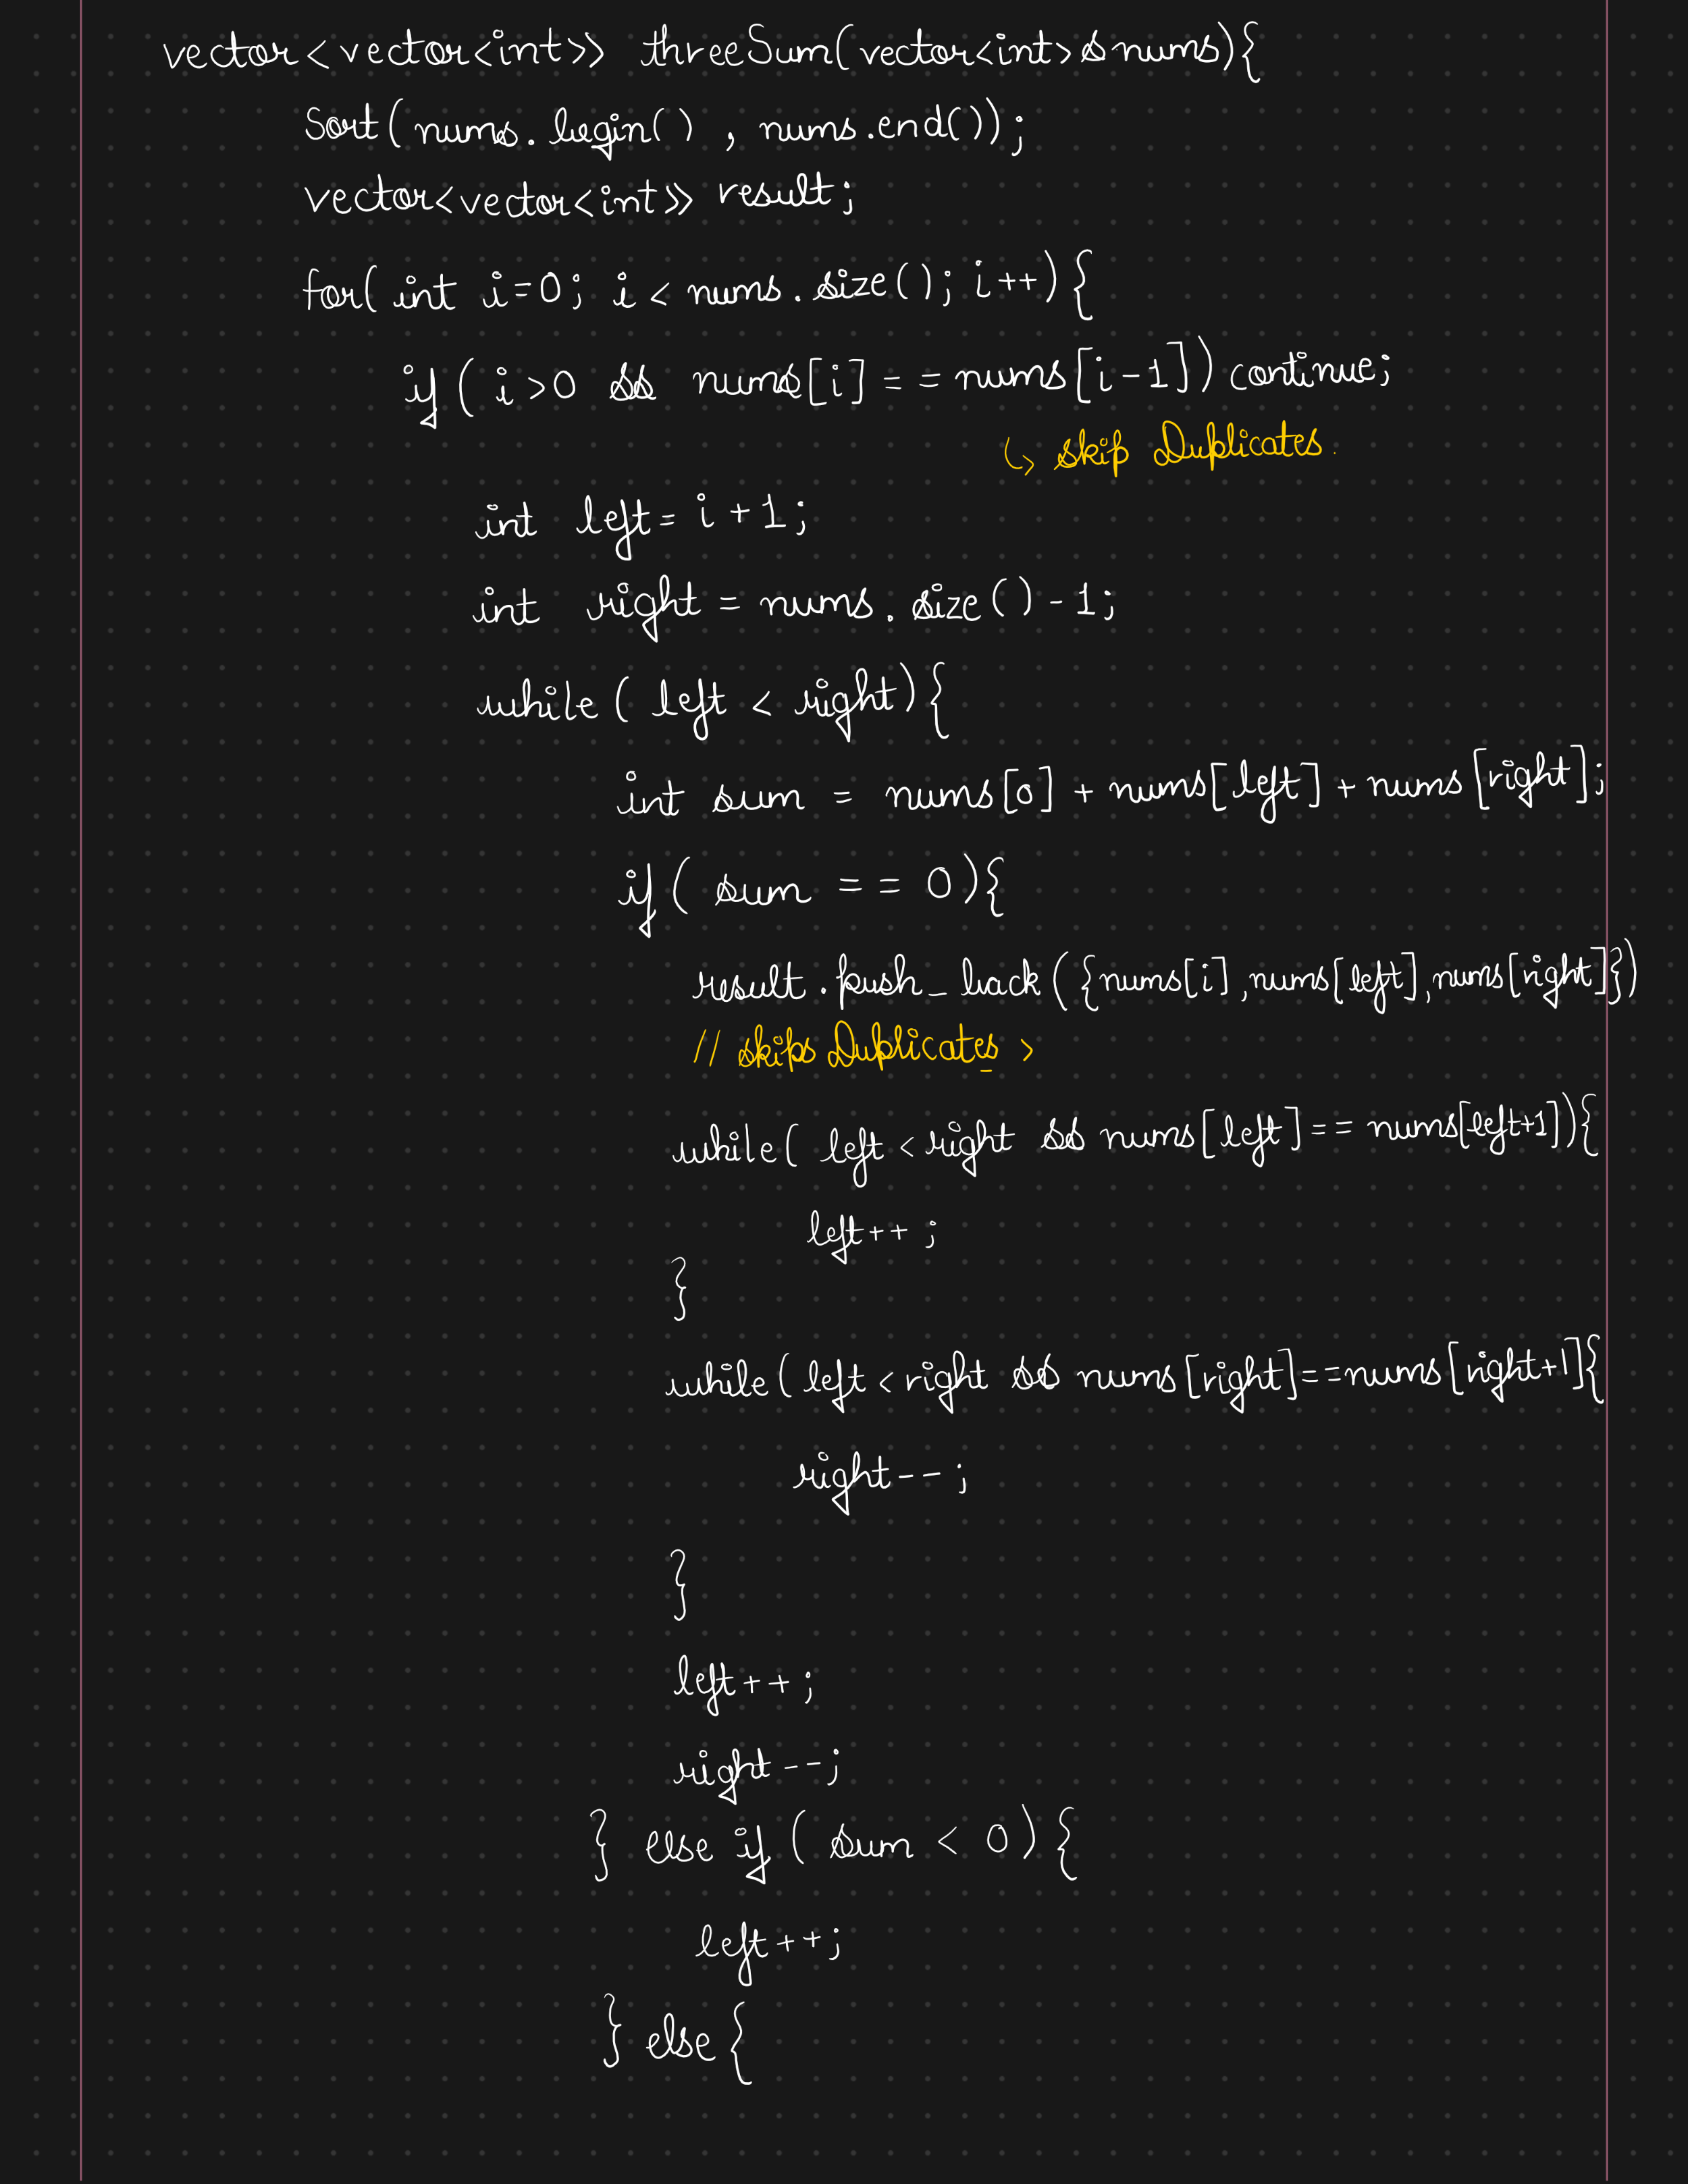 vector<vector<int>> threeSum(vector<int>& nums){
Sort(nums.begin() , nums.end());
vector<vector<int>> result;
for( int i=0; i < nums.size(); i++){
if ( i>0 && nums[i] == nums[i-1]) continue;
↳ skip Duplicates.
int left = i + 1;
int right = nums.size() - 1;
while ( left < right){
int sum = nums[0] + nums[left] + nums[right];
if ( sum == 0){
result.push_back({nums[i],nums[left],nums[right]})
// skips Duplicates >
while( left < right && nums[left] == nums[left+1]){
left++ ;
}
while (left < right && nums[right]==nums[right+1]{
right-- ;
}
left++;
right--;
} else if ( sum < 0){
left++;
} else {